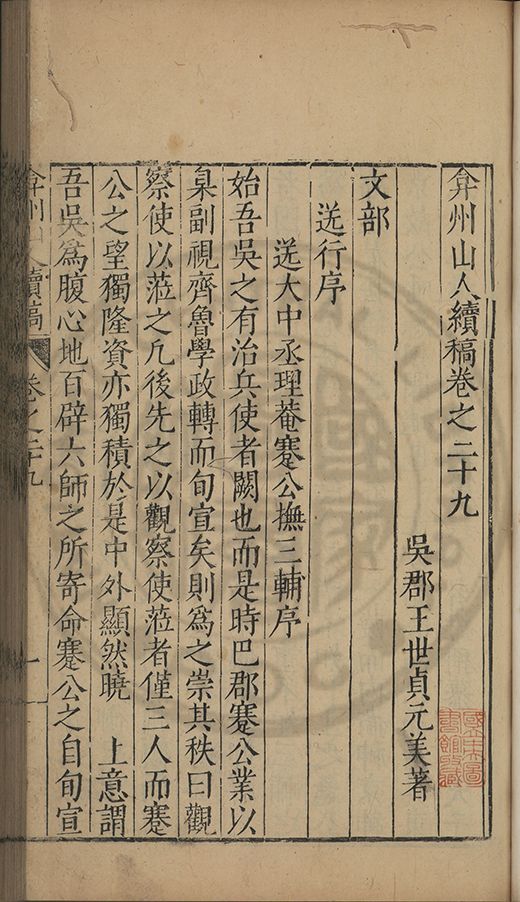 弇州山人續稿卷之二十九
吳郡王世貞元美著
文部
送行序
送大中丞理菴蹇公撫三輔序
始吾吳之有治兵使者闕也而是時巴郡蹇公業以
臬副視齊魯學政轉而旬宣矣則為之崇其秩曰觀
察使以蒞之凢後先之以觀察使蒞者僅三人而蹇
公之望獨隆資亦獨積於是中外顯然曉 上意謂
吾吳為腹心地百辟六師之所寄命蹇公之自旬宣
弇州山人續稿 卷之二十九 一
國立中央圖書館收藏